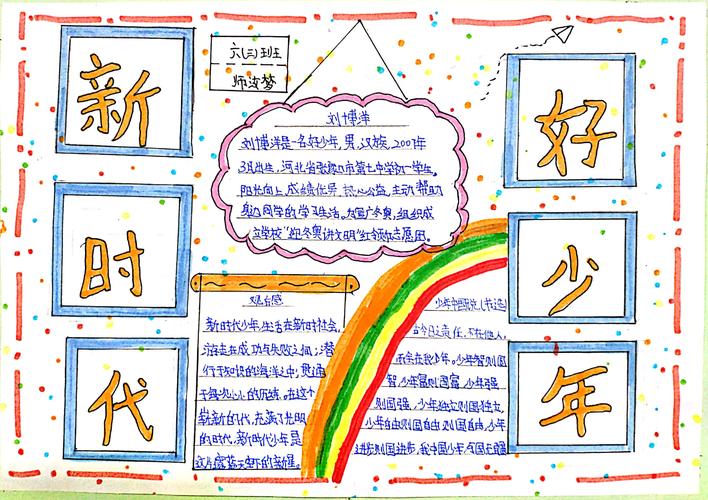 新
时
代
好
少
年
六(三)班
刘博洋
刘博洋是一名好少年,男,汉族,2007年
3月出生,河北省张家口市第七中学初一学生。
阳光向上,成绩优异,热心公益,主动帮助
身边同学的学习生活。为推广冬奥,组织成
立学校“迎冬奥讲文明”红领巾志愿团。
观后感
新时代少年生活在新时社会,
游走在成功与失败之间;潜
行于知识的海洋之中,
在这个
崭新的代,充满了光明
的时代,新时代少年是
这片蓝天下的新星。
少年中国说(节选)
故今日之责任,不在他人,
而全在我少年。少年智则国
智,少年富则国富,少年强
则国强,少年独立则国独立,
少年自由则国自由,少年
进步则国进步,我中国少年,与国无疆